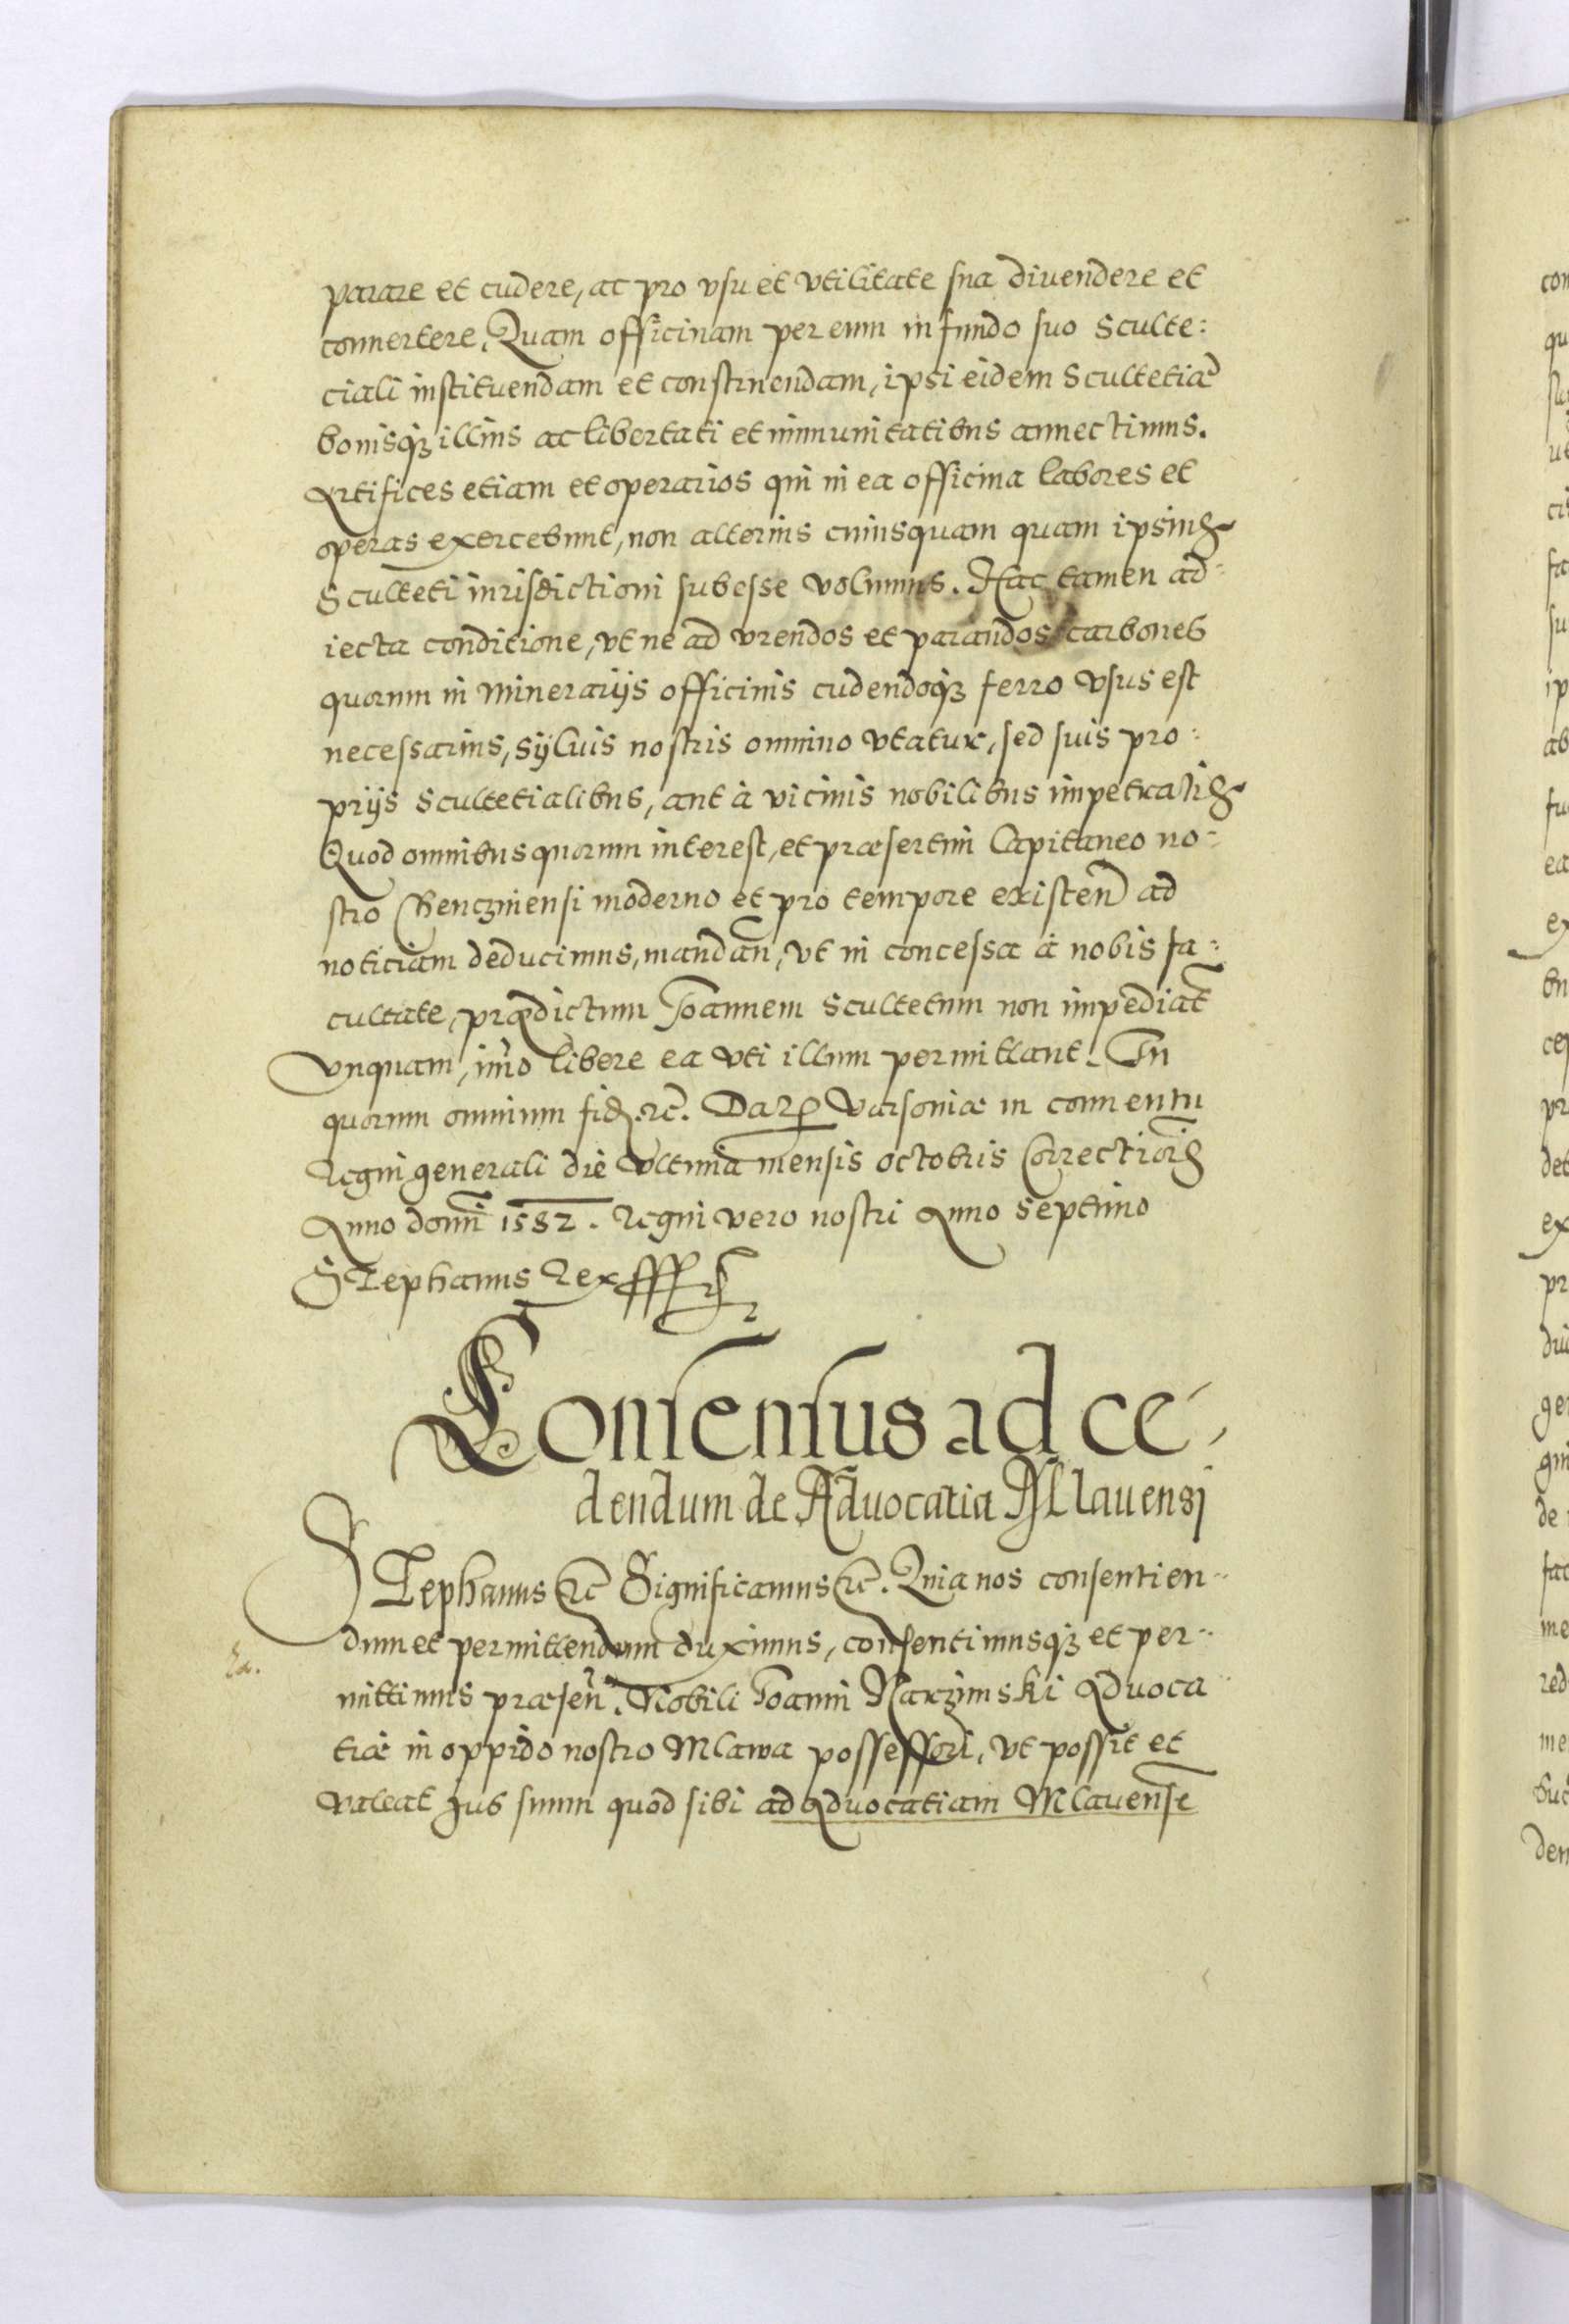 parare et cudere, ac pro vsu et vtilitate sua divendere et
conuertere. Quam officinam per eum in fundo suo Sculte:
ciali instituendam et construendam, ipsi eidem Scultetiae
bonisq; illius ac libertati et immunitatibus annectimus.
Artifices etiam et operarios qui in ea officina labores et
operas exercebunt, non alterius cuiusquam quam ipsius
Sculteti iurisdictioni subesse volumus. Hac tamen ad:
iecta conditione, vt ne ad vrendos et parandos carbones
quorum in Minerarijs officinis cudendoq; ferro vsus est
necessarius, syluis nostris omnino vtatur, sed suis pro:
prijs Scultetialibus, aut à vicinis nobilibus impetratis
Quod omnibus quorum interest, et præsertim Capitaneo no:
stro Chenczinensi moderno et pro tempore existen ad
noticiam deducimus, mandan, vt in concessa à nobis fa:
cultate, prædictum Joannem Scultetum non impediat
vnquam, imo libere ea vti illum permittant. In
quorum omnium fid. etc. Dat Varsoniæ in conuentu
Regni generali die vltima mensis octobris Correctionis
Anno domi 1582. Regni vero nostri Anno Septimo
Stephanus Rex
Consensus ad ce,
dendum de Advocatia Mlauensi
Stephanus etc Significamus etc. Quia nos consentien:
dum et permittendum duximus, consentimusq; et per:
mittimus præsen. Nobili Joanni Narzimski Aduoca
tiæ in oppido nostro Mlawa possessori, vt possit et
valeat Jus suum quod sibi ad Aduocatiam Mlauense